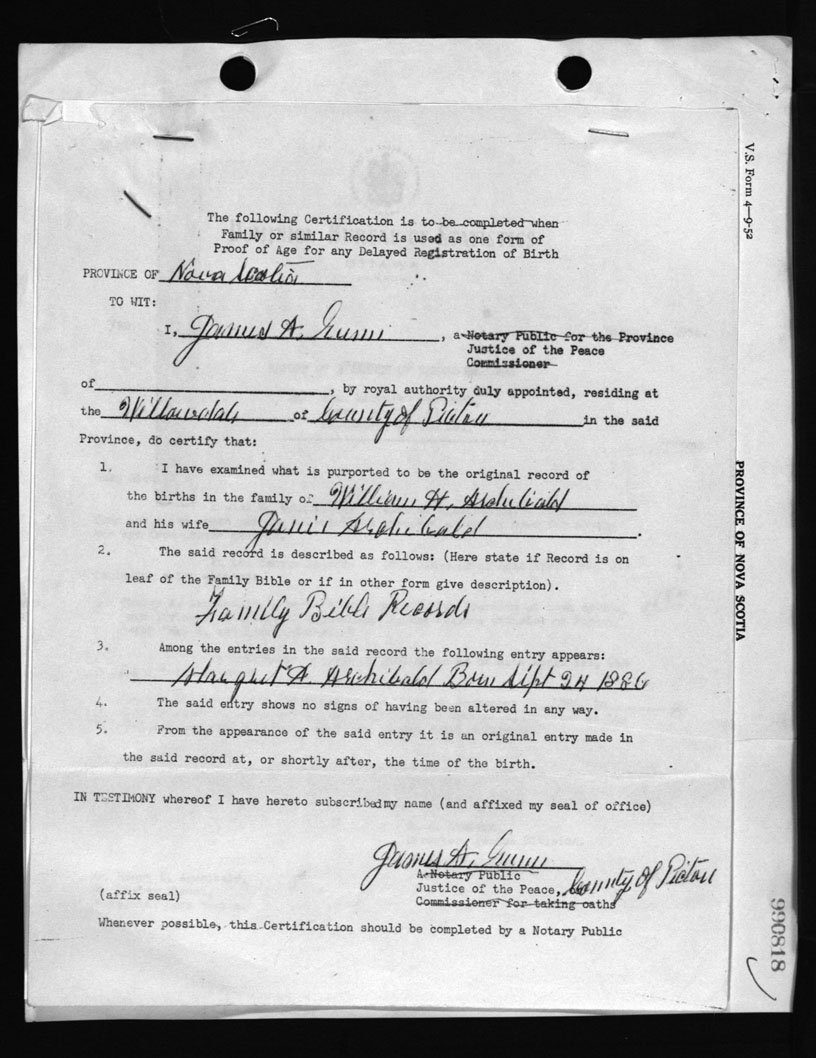 The following Certification is to be completed when
Family or similar Record is used as one form of
Proof of Age for any Delayed Registration of Birth
PROVINCE OF Nova Scotia
TO WIT:
I, James A. Gunn, a Notary Public for the Province
Justice of the Peace
Commissioner
of , by royal authority duly appointed, residing at
the Willowdale of County of Pictou in the said
Province, do certify that:
1. I have examined what is purported to be the original record of
the births in the family of William H. Archibald
and his wife Janie Archibald.
2. The said record is described as follows: (Here state if Record is on
leaf of the Family Bible or if in other form give description).
Family Bible Records
3. Among the entries in the said record the following entry appears:
Margret A. Archibald Born Sept 24 1886
4. The said entry shows no signs of having been altered in any way.
5. From the appearance of the said entry it is an original entry made in
the said record at, or shortly after, the time of the birth.
IN TESTIMONY whereof I have hereto subscribed my name (and affixed my seal of office)
James A. Gunn
A Notary Public
Justice of the Peace, County of Pictou
Commissioner for taking oaths
(affix seal)
Whenever possible, this Certification should be completed by a Notary Public
V.S. Form 4—9-52
PROVINCE OF NOVA SCOTIA
990818